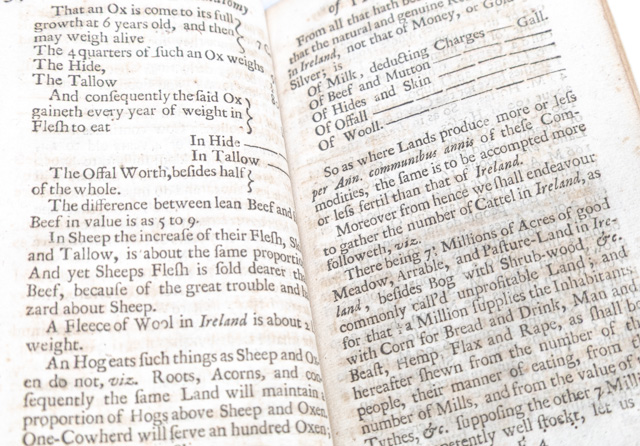 That an Ox is come to its full
growth at 6 years old, and then
may weigh alive
The 4 quarters of ſuch an Ox weighs
The Hide,
The Tallow
And conſequently the ſaid Ox
gaineth every year of weight in
Fleſh to eat
In Hide
In Tallow
The Offal Worth, beſides half
of the whole.
The difference between lean Beef and
Beef in value is as 5 to 9.
In Sheep the increaſe of their Fleſh,
and Tallow, is about the ſame proportio
And yet Sheeps Fleſh is ſold dearer
Beef, becauſe of the great trouble and
zard about Sheep.
A Fleece of Wool in Ireland is about
weight.
An Hog eats ſuch things as Sheep and
en do not, viz. Roots, Acorns, and con
ſequently the ſame Land will maintain
proportion of Hogs above Sheep and Oxen
One-Cowherd will ſerve an hundred Oxen
of
From all that hath
that the natural and genuine
in Ireland, not that of Money, or
Silver; is Gall.
Of Milk, deducting Charges
Of Beef and Mutton
Of Hides and Skin
Of Offall
Of Wooll.
So as where Lands produce more or leſs
per Ann. communibus annis of theſe Com-
modities, the ſame is to be accompted more
or leſs fertil than that of Ireland.
Moreover from hence we ſhall endeavour
to gather the number of Cattel in Ireland, as
followeth, viz.
There being 7½ Millions of Acres of good
Meadow, Arrable, and Paſture-Land in Ire-
land, beſides Bog with Shrub-wood, &c.
commonly call'd unprofitable Land; and
for that ½ a Million ſupplies the Inhabitants
with Corn for Bread and Drink, Man and
Beaſt, Hemp Flax and Rape, as ſhall b
hereafter ſhewn from the number of th
people, their manner of eating, from
number of Mills, and from the value of
Tythes, &c. ſuppoſing the other 7 Mill
ſtockt, let us